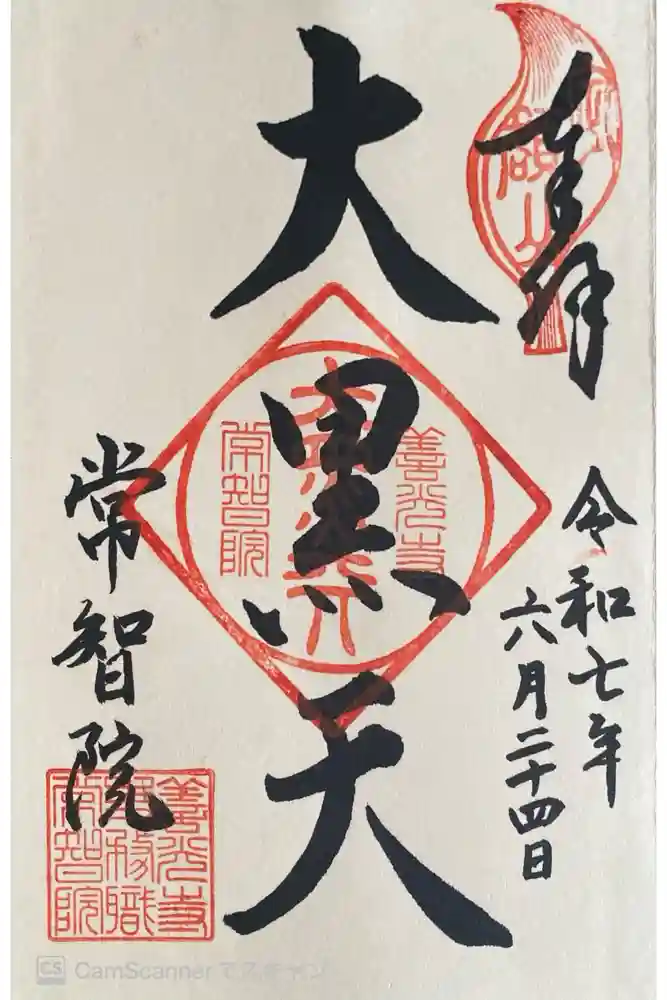 奉拝
令和七年
六月二十四日
大黒天
善光寺
大黒天
常智院
常智院
善光寺
常智院
CS CamScanner でスキャン